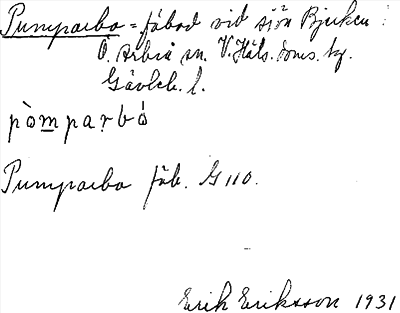 Pumparbo = fäbod vid sjön Bjurken :
Ö. Arbrå sn. V. Häls. doms. hg.
Gävleb. l.
pòmparbó
Pumparbo fäb. G 110.
Erik Eriksson 1931